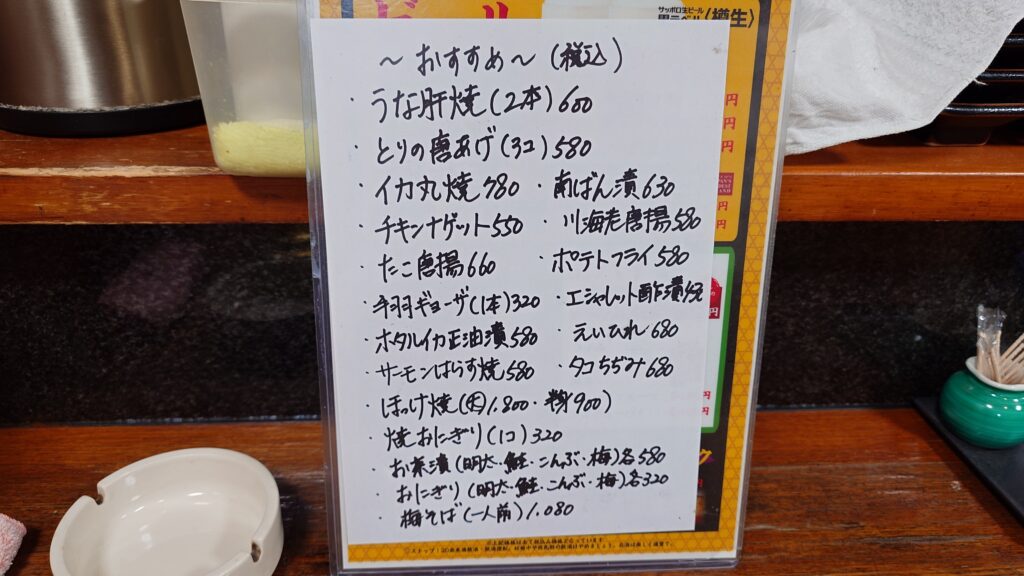 ビール
サッポロ生ビール
黒ラベル〈樽生〉
〜おすすめ〜(税込)
・うな肝焼(2本)600
・とりの唐あげ(3コ)580
・イカ丸焼780 ・南ばん漬630
・チキンナゲット550 ・川海老唐揚580
・たこ唐揚660 ・ポテトフライ580
・手羽ギョーザ(1本)320 ・エシャレット酢漬450
・ホタルイカ正油漬580 ・えいひれ680
・サーモンはらす焼580 ・タコちぢみ680
・ほっけ焼(大)1.800・半身900)
・焼おにぎり(1コ)320
・お茶漬(明太・鮭・こんぶ・梅)各580
・おにぎり(明太・鮭・こんぶ・梅)各320
・梅そば(一人前)1.080
円
円
円
円
円
円
円
ク